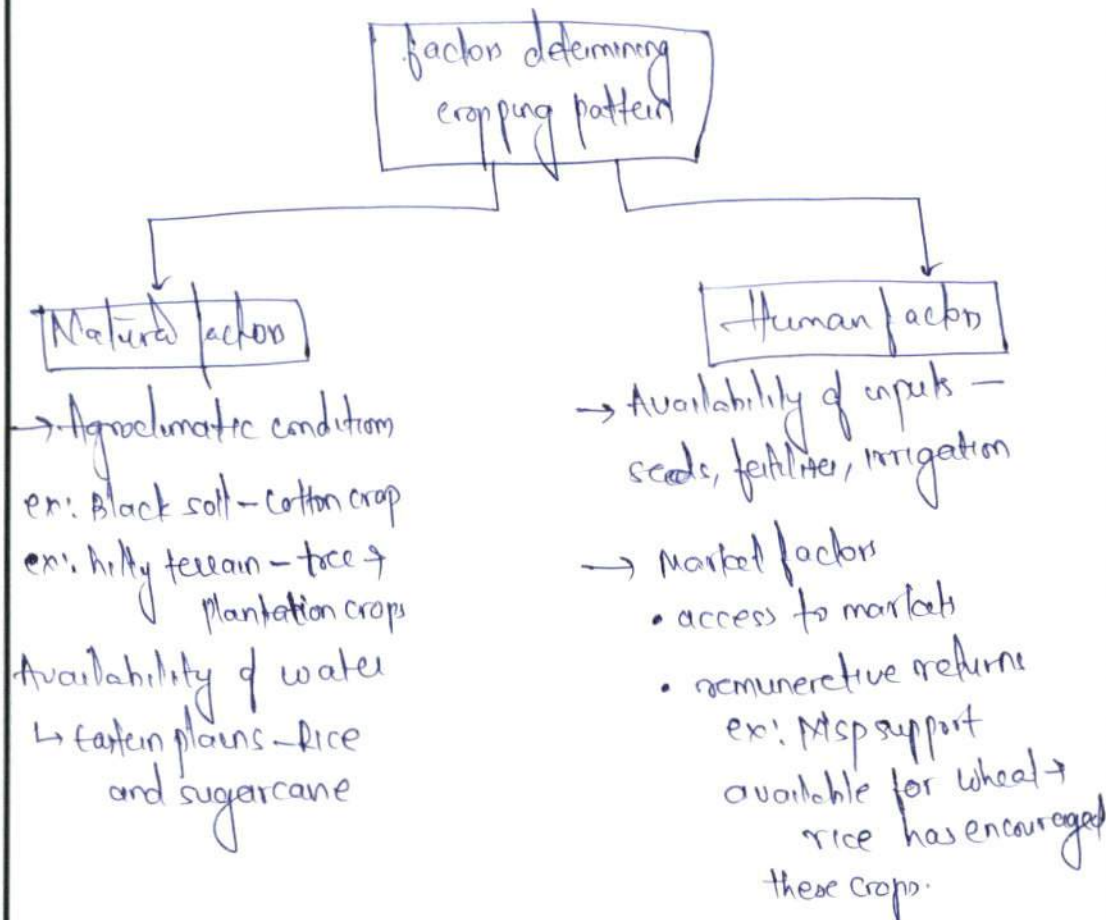 factors determining
cropping pattern
Natural factors
→ Agroclimatic condition
ex: Black soil - Cotton crop
ex: hilly terrain - tree +
plantation crops
Availability of water
↳ Eastern plains - Rice
and sugarcane
Human factors
→ Availability of inputs -
seeds, fertilizer, irrigation
→ Market factors
• access to markets
• remuneretive returns
ex: MSP support
available for wheat +
rice has encouraged
these crops.